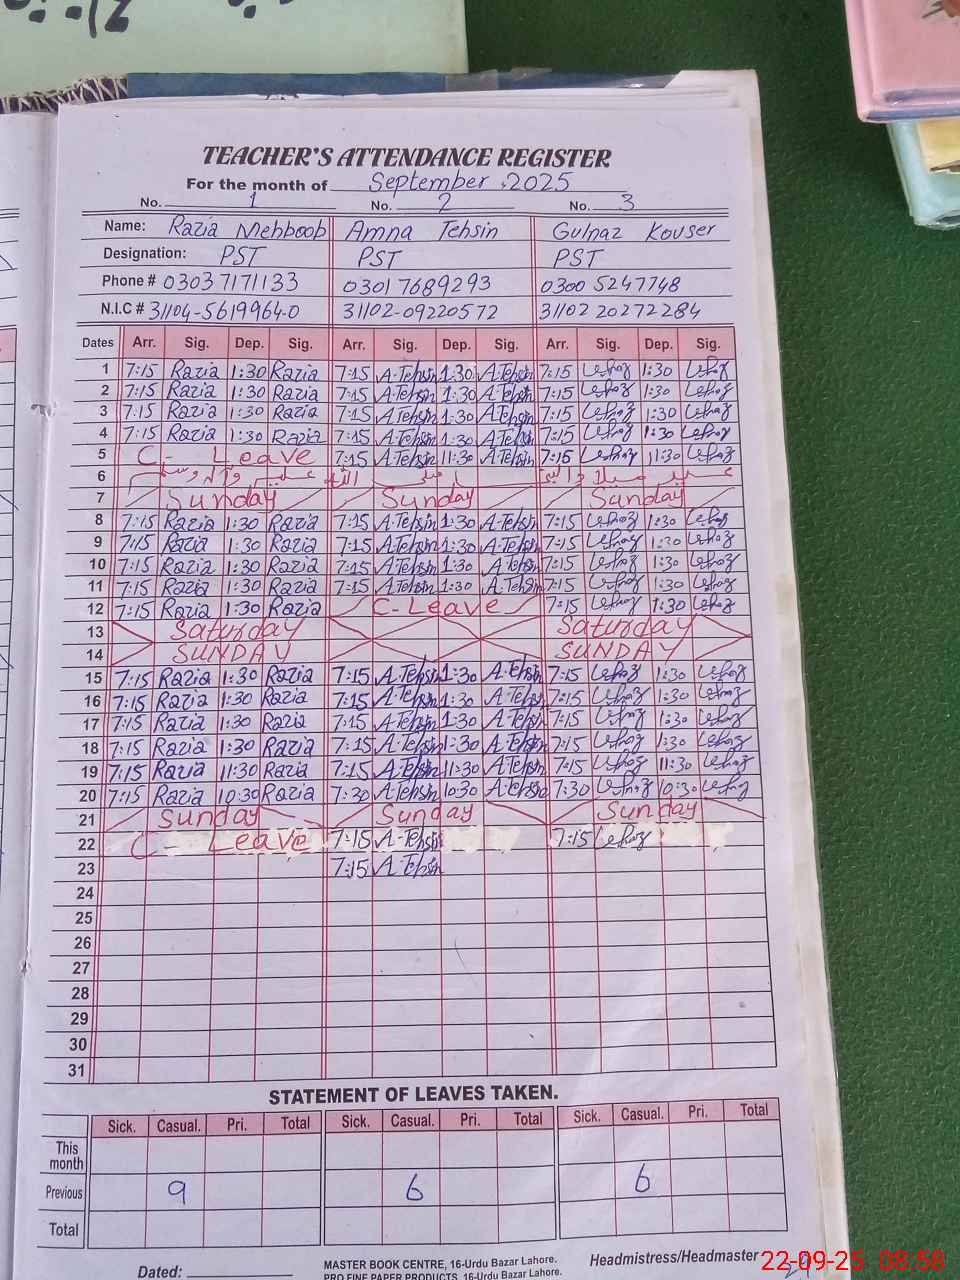 TEACHER'S ATTENDANCE REGISTER
For the month of September 2025
No. 1 No. 2 No. 3
Name: Razia Mehboob Amna Tehsin Gulnaz Kouser
Designation: PST PST PST
Phone # 0303 7171133 0301 7689293 0300 5247748
N.I.C # 31104-5619964-0 31102-09220572 31102 20272284
Dates Arr. Sig. Dep. Sig. Arr. Sig. Dep. Sig. Arr. Sig. Dep. Sig.
1 7:15 Razia 1:30 Razia 7:15 A.Tehsin 1:30 A.Tehsin 7:15 1:30
2 7:15 Razia 1:30 Razia 7:15 A.Tehsin 1:30 A.Tehsin 7:15 1:30
3 7:15 Razia 1:30 Razia 7:15 A.Tehsin 1:30 A.Tehsin 7:15 1:30
4 7:15 Razia 1:30 Razia 7:15 A.Tehsin 1:30 A.Tehsin 7:15 1:30
5 C- Leave 7:15 A.Tehsin 11:30 A.Tehsin 7:15 11:30
6
7 Sunday Sunday Sunday
8 7:15 Razia 1:30 Razia 7:15 A.Tehsin 1:30 A.Tehsin 7:15 1:30
9 7:15 Razia 1:30 Razia 7:15 A.Tehsin 1:30 A.Tehsin 7:15 1:30
10 7:15 Razia 1:30 Razia 7:15 A.Tehsin 1:30 A.Tehsin 7:15 1:30
11 7:15 Razia 1:30 Razia 7:15 A.Tehsin 1:30 A.Tehsin 7:15 1:30
12 7:15 Razia 1:30 Razia C-Leave 7:15 1:30
13 Saturday Saturday
14 SUNDAY SUNDAY
15 7:15 Razia 1:30 Razia 7:15 A.Tehsin 1:30 A.Tehsin 7:15 1:30
16 7:15 Razia 1:30 Razia 7:15 A.Tehsin 1:30 A.Tehsin 7:15 1:30
17 7:15 Razia 1:30 Razia 7:15 A.Tehsin 1:30 A.Tehsin 7:15 1:30
18 7:15 Razia 1:30 Razia 7:15 A.Tehsin 1:30 A.Tehsin 7:15 1:30
19 7:15 Razia 11:30 Razia 7:15 A.Tehsin 11:30 A.Tehsin 7:15 11:30
20 7:15 Razia 10:30 Razia 7:30 A.Tehsin 10:30 A.Tehsin 7:30 10:30
21 Sunday Sunday Sunday
22 C- Leave 7:15 A.Tehsin 7:15
23 7:15 A.Tehsin
24
25
26
27
28
29
30
31
STATEMENT OF LEAVES TAKEN.
Sick. Casual. Pri. Total Sick. Casual. Pri. Total Sick. Casual. Pri. Total
This month
Previous 9 6 6
Total
Dated: MASTER BOOK CENTRE, 16-Urdu Bazar Lahore. Headmistress/Headmaster
PRO FINE PAPER PRODUCTS, 16-Urdu Bazar Lahore.
22-09-25 08:58